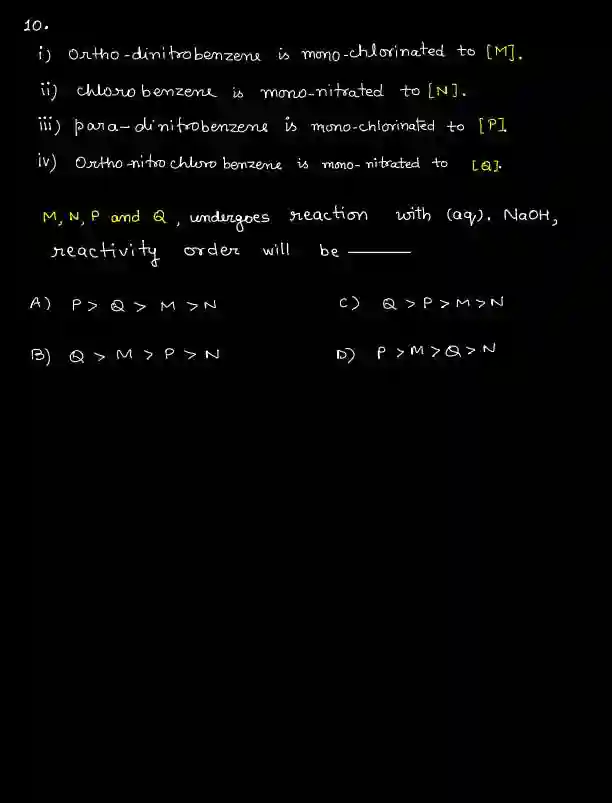 10.
i) Ortho-dinitrobenzene is mono-chlorinated to [M].
ii) chloro benzene is mono-nitrated to [N].
iii) para-dinitrobenzene is mono-chlorinated to [P].
iv) Ortho-nitro chloro benzene is mono-nitrated to [Q].
M, N, P and Q, undergoes reaction with (aq). NaOH,
reactivity order will be ———
A) P > Q > M > N C) Q > P > M > N
B) Q > M > P > N D) P > M > Q > N